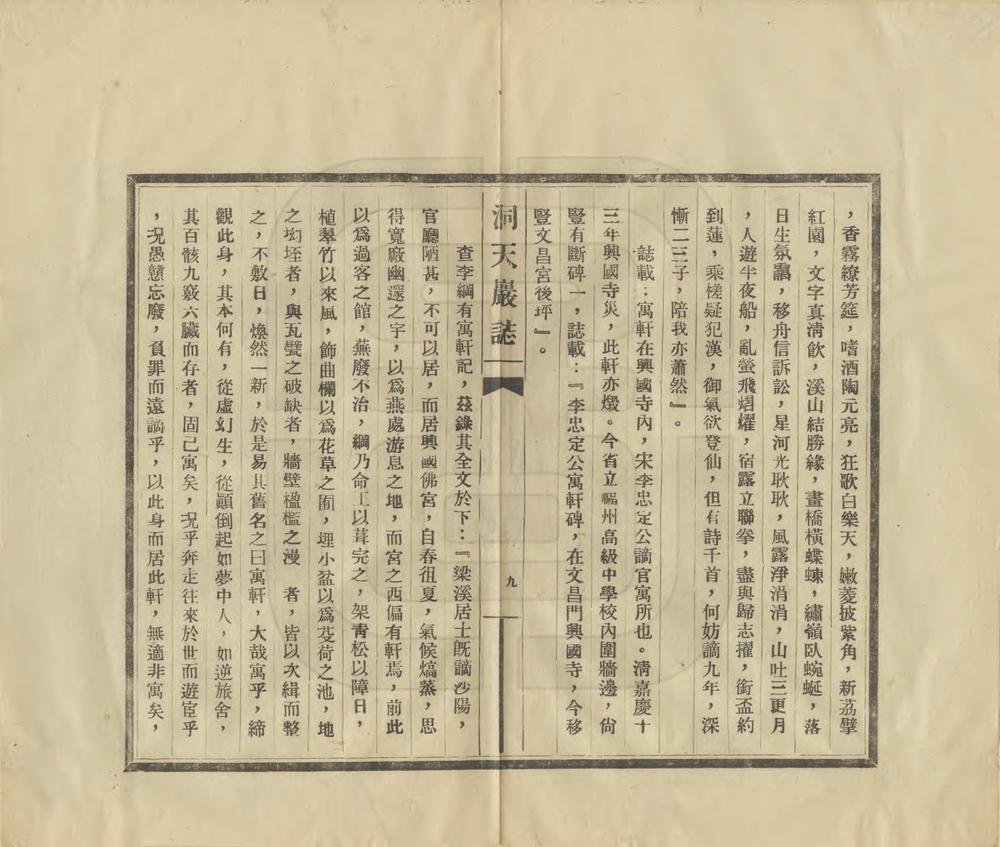 ，香霧繚芳筵，嗜酒陶元亮，狂歌白樂天，嫩菱披紫角，新荔擘
紅圓，文字真清飲，溪山結勝緣，畫橋橫螮蝀，繡嶺臥蜿蜒，落
日生氛靄，移舟信訴訟，星河光耿耿，風露淨涓涓，山吐三更月
，人遊半夜船，亂螢飛熠燿，宿露立聯拳，盡與歸志擢，銜盃約
到蓮，乘槎疑犯漢，御氣欲登仙，但有詩千首，何妨謫九年，深
慚二三子，陪我亦蕭然』。
誌載：寓軒在興國寺內，宋李忠定公謫官寓所也。清嘉慶十
三年興國寺災，此軒亦燬。今省立福州高級中學校內圍牆邊，尙
豎有斷碑一，誌載：『李忠定公寓軒碑，在文昌門興國寺，今移
豎文昌宮後坪』。
洞天巖誌
九
查李綱有寓軒記，茲錄其全文於下：『梁溪居士旣謫沙陽，
官廳陋甚，不可以居，而居興國佛宮，自春徂夏，氣候熇蒸，思
得寬廠幽邃之宇，以爲燕處游息之地，而宮之西偏有軒焉，前此
以爲過客之館，蕪廢不治，綱乃命工以葺完之，架靑松以障日，
植翠竹以來風，飾曲欄以爲花草之囿，埋小盆以爲芰荷之池，地
之坳垤者，與瓦甓之破缺者，牆壁楹檻之漫　者，皆以次緝而整
之，不敷日，煥然一新，於是易其舊名之曰寓軒，大哉寓乎，締
觀此身，其本何有，從虛幻生，從顚倒起如夢中人，如逆旅舍，
其百骸九竅六臟而存者，固己寓矣，况乎奔走往來於世而遊宦乎
，况愚戇忘廢，負罪而遠謫乎，以此身而居此軒，無適非寓矣，